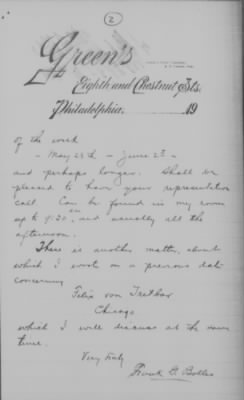 2
Green's
Eighth and Chestnut Sts.
Philadelphia, 19
of the week
- May 28th - June 2d -
and perhaps longer. Shall be
pleased to have your representative
call. Can be found in my room
up to 9:30 and usually all the
afternoon.
There is another matter, about
which I wrote on a previous date
concerning
Felix von
Chicago
which I will discuss at the same
time.
Very truly
Frank G. Bolles